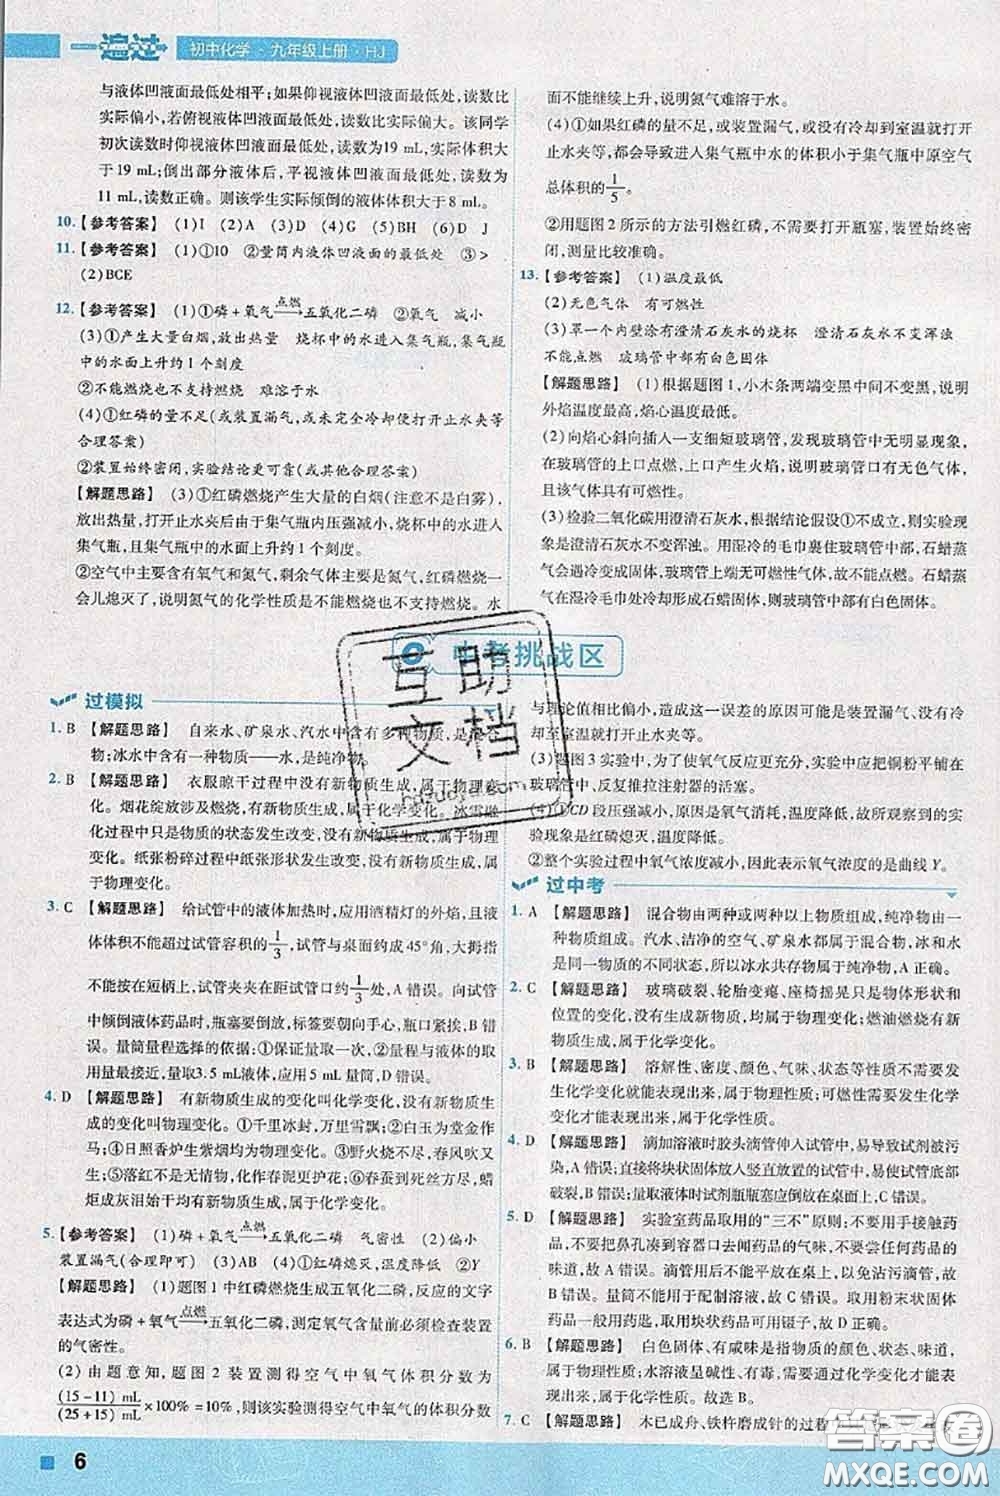 一遍过 初中化学·九年级上册·HJ
与液体凹液面最低处相平;如果仰视液体凹液面最低处,读数比
实际偏小,若俯视液体凹液面最低处,读数比实际偏大。该同学
初次读数时仰视液体凹液面最低处,读数为19 mL,实际体积大
于19 mL;倒出部分液体后,平视液体凹液面最低处,读数为
11 mL,读数正确。则该学生实际倾倒的液体体积大于8 mL。
10.【参考答案】 (1)I (2)A (3)C (4)G (5)BH (6)D J
11.【参考答案】 (1)①10 ②量筒内液体凹液面的最低处 ③>
(2)BCE
12.【参考答案】 (1)①磷+氧气 点燃→ 五氧化二磷 ②氧气 减小
(3)①产生大量白烟,放出热量 烧杯中的水进入集气瓶,集气瓶
中的水面上升约1个刻度
②不能燃烧也不支持燃烧 难溶于水
(4)①红磷的量不足(或装置漏气,或未完全冷却便打开止水夹等
合理答案)
②装置始终密闭,实验结论更可靠(或其他合理答案)
【解题思路】 (3)①红磷燃烧产生大量的白烟(注意不是白雾),
放出热量,打开止水夹后由于集气瓶内压强减小,烧杯中的水进入
集气瓶,且集气瓶中的水面上升约1个刻度。
②空气中主要含有氧气和氮气,剩余气体主要是氮气,红磷燃烧一
会儿熄灭了,说明氮气的化学性质是不能燃烧也不支持燃烧。水
面不能继续上升,说明氮气难溶于水。
(4)①如果红磷的量不足,或装置漏气,或没有冷却到室温就打开
止水夹等,都会导致进入集气瓶中水的体积小于集气瓶中原空气
总体积的1/5。
②用题图2所示的方法引燃红磷,不需要打开瓶塞,装置始终密
闭,测量比较准确。
13.【参考答案】 (1)温度最低
(2)无色气体 有可燃性
(3)罩一个内壁涂有澄清石灰水的烧杯 澄清石灰水不变浑浊
不能点燃 玻璃管中部有白色固体
【解题思路】 (1)根据题图1,小木条两端变黑中间不变黑,说明
外焰温度最高,焰心温度最低。
(2)向焰心斜向插入一支细短玻璃管,发现玻璃管中无明显现象,
在玻璃管的上口点燃,上口产生火焰,说明玻璃管口有无色气体,
且该气体具有可燃性。
(3)检验二氧化碳用澄清石灰水,根据结论假设①不成立,则实验现
象是澄清石灰水不变浑浊。用湿冷的毛巾裹住玻璃管中部,石蜡蒸
气会遇冷变成固体,玻璃管上端无可燃性气体,故不能点燃。石蜡蒸
气在湿冷毛巾处冷却形成石蜡固体,则玻璃管中部有白色固体。
C 中考挑战区
过模拟
1. B 【解题思路】 自来水、矿泉水、汽水中含有多种物质,是混合
物;冰水中含有一种物质——水,是纯净物。
2. B 【解题思路】 衣服晾干过程中没有新物质生成,属于物理变
化。烟花绽放涉及燃烧,有新物质生成,属于化学变化。冰雪融
化过程中只是物质的状态发生改变,没有新物质生成,属于物理
变化。纸张粉碎过程中纸张形状发生改变,没有新物质生成,属
于物理变化。
3. C 【解题思路】 给试管中的液体加热时,应用酒精灯的外焰,且液
体体积不能超过试管容积的1/3,试管与桌面约成45°角,大拇指
不能按在短柄上,试管夹夹在距试管口约1/3处,A错误。向试管
中倾倒液体药品时,瓶塞要倒放,标签要朝向手心,瓶口紧挨,B错
误。量筒量程选择的依据:①保证量取一次,②量程与液体的取
用量最接近,量取3.5 mL液体,应用5 mL量筒,D错误。
4. D 【解题思路】 有新物质生成的变化叫化学变化,没有新物质生
成的变化叫物理变化。①千里冰封,万里雪飘;②白玉为堂金作
马;④日照香炉生紫烟均为物理变化。③野火烧不尽,春风吹又
生;⑤落红不是无情物,化作春泥更护花;⑥春蚕到死丝方尽,蜡
炬成灰泪始干均有新物质生成,属于化学变化。
5.【参考答案】 (1)磷+氧气 点燃→ 五氧化二磷 气密性 (2)偏小
装置漏气(合理即可) (3)B (4)①红磷熄灭,温度降低 ②Y
【解题思路】 (1)题图1中红磷燃烧生成五氧化二磷,反应的文字
表达式为磷+氧气 点燃→ 五氧化二磷,测定氧气含量前必须检查装置
的气密性。
(2)由题意知,题图2装置测得空气中氧气体积分数为
(15-11) mL/(25+15) mL×100%=10%,则该实验测得空气中氧气的体积分数
与理论值相比偏小,造成这一误差的原因可能是装置漏气、没有冷
却至室温就打开止水夹等。
(3)题图3实验中,为了使氧气反应更充分,实验中应把铜粉平铺在
玻璃管中、反复推拉注射器的活塞。
(4)①CD段压强减小,原因是氧气消耗,温度降低,故所观察到的实
验现象是红磷熄灭,温度降低。
②整个实验过程中氧气浓度减小,因此表示氧气浓度的是曲线Y。
过中考
1. A 【解题思路】 混合物由两种或两种以上物质组成,纯净物由
一种物质组成。汽水、洁净的空气、矿泉水都属于混合物,冰和水
是同一物质的不同状态,所以冰水共存物属于纯净物,A正确。
2. C 【解题思路】 玻璃破裂、轮胎变瘪、座椅摇晃只是物体形状和
位置的变化,没有生成新物质,均属于物理变化;燃油燃烧有新物
质生成,属于化学变化。
3. B 【解题思路】 溶解性、密度、颜色、气味、状态等性质不需要
发生化学变化就能表现出来,属于物理性质;可燃性需要发生化学
变化才能表现出来,属于化学性质。
4. D 【解题思路】 滴加溶液时胶头滴管伸入试管中,易导致试剂被污
染,A错误;直接将块状固体放入竖直放置的试管中,易使试管底部
破裂,B错误;量取液体时试剂瓶瓶塞应倒放在桌面上,C错误。
5. D 【解题思路】 实验室药品取用的“三不”原则:不要用手接触药
品,不要把鼻孔凑到去闻药品的气味,不要尝任何药品的
味道,所以A错误。滴管用后不能平放,以免沾污滴管,故B错
误。量筒不能用于配制溶液,故C错误。取用粉末状固体药品
一般用药匙,取用块状药品可用镊子,故D正确。
6. B 【解题思路】 白色固体、有咸味是指物质的颜色、状态、味道,
属于物理性质;水溶液呈碱性、有毒,需要通过化学变化才能才能
表现出来,属于化学性质。故选B。
7. C 【解题思路】 木已成舟、铁杵磨成针的过程
6
互助文档
答案圈
MXQE.COM